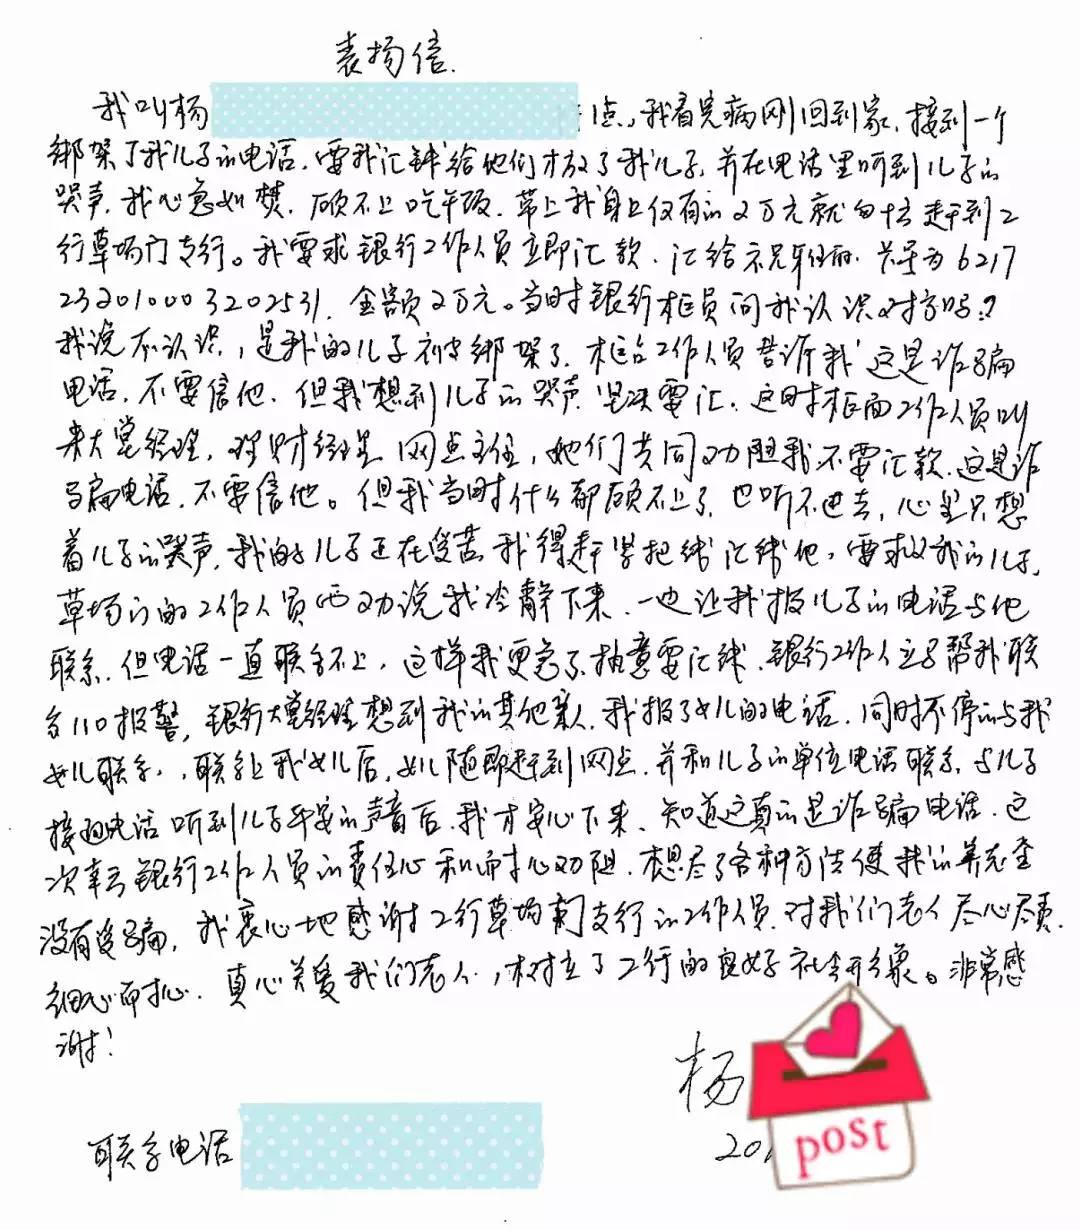 表扬信.
我叫杨 1点,我看完病刚回到家,接到一个
绑架了我儿子的电话,要我汇钱给他们才放了我儿子,并在电话里听到儿子的
哭声,我心急如焚,顾不上吃午饭,带上我身上仅有的2万元就匆忙赶到工
行草场门支行。我要求银行工作人员立即汇款,汇给 卡号为6217
2320100003202531,金额2万元。当时银行柜员问我认识对方吗?
我说不认识,是我的儿子被绑架了,柜台工作人员告诉我这是诈骗
电话,不要信他,但我想到儿子的哭声坚决要汇,这时柜面工作人员叫
来大堂经理,理财经理,网点主任,她们共同劝阻我不要汇款,这是诈
骗电话,不要信他。但我当时什么都顾不上了,也听不进去,心里只想
着儿子的哭声,我的儿子正在受苦,我得赶紧把钱汇给他,要求放我的儿子,
草场门的工作人员 劝说我冷静下来,一边让我报儿子的电话与他
联系,但电话一直联系不上,这样我更急了,执意要汇钱,银行工作人员帮我联
系110报警,银行大堂经理想到我的其他亲人,我报了女儿的电话,同时不停的与我
女儿联系,,联系上我女儿后,女儿随即赶到网点,并和儿子的单位电话联系,与儿子
接通电话听到儿子平安的声音后,我才安心下来,知道这真的是诈骗电话,这
次幸亏银行工作人员的责任心和耐心劝阻,想尽了各种方法使我的养老金
没有受骗,我衷心地感谢工行草场门支行的工作人员,对我们老人尽心尽责,
细心耐心,真心关爱我们老人,树立了工行的良好社会形象。非常感
谢!
杨
20
post
联系电话